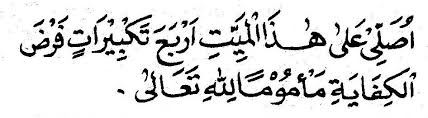 اُصَلِّىْ عَلٰى هٰذَا الْمَيِّتِ اَرْبَعَ تَكْبِيْرَاتٍ فَرْضَ
الْكِفَايَةِ مَأْمُوْمًا لِلّٰهِ تَعَالٰى .